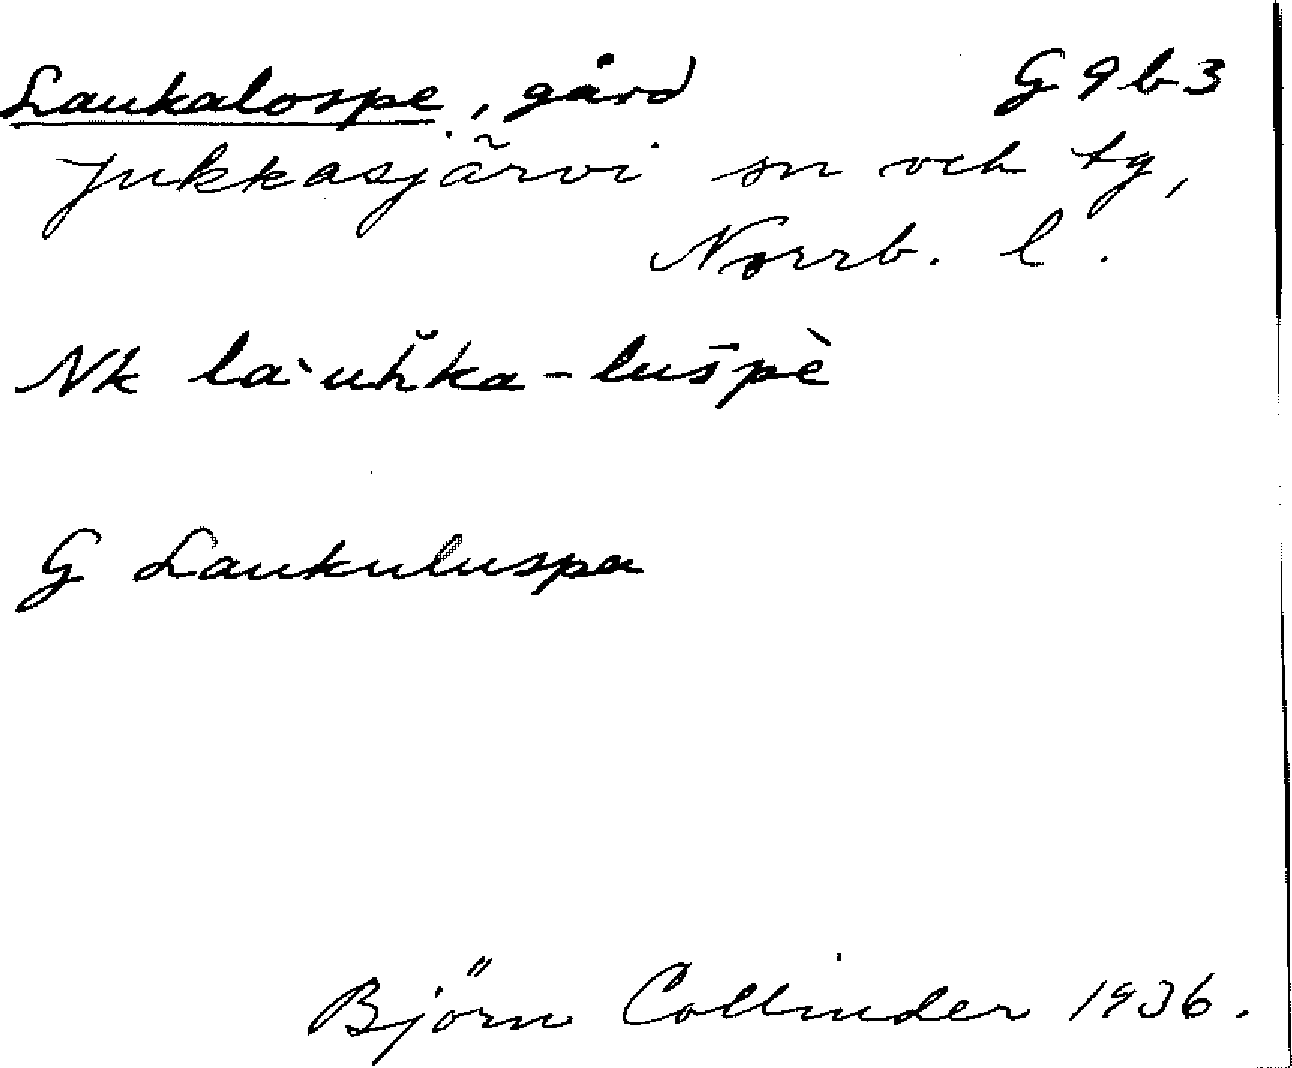 Laukalospe, gård G 9 b 3
Jukkasjärvi sn och tg,
Norrb. l.
Nk la`uȟka-lus̄pè
G Laukuluspa
Björn Collinder 1936.